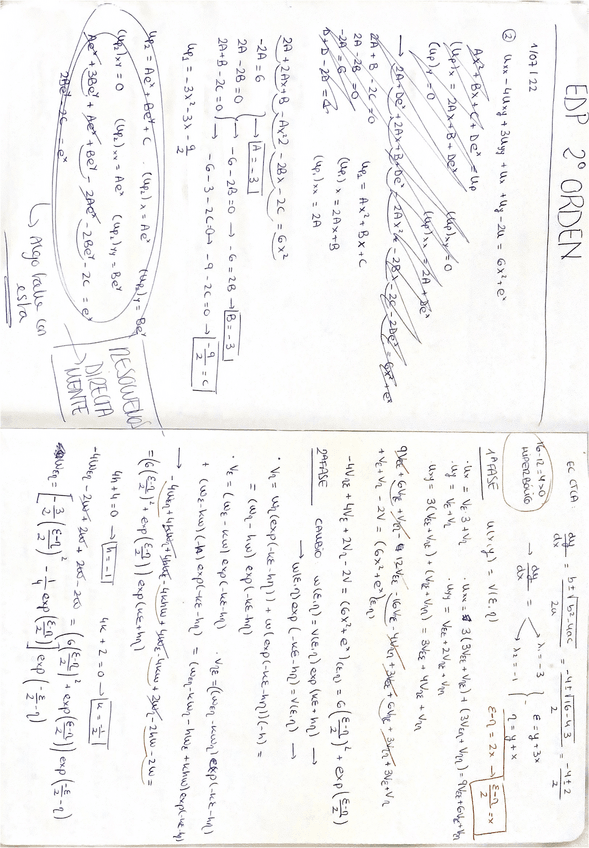 EDP 2º ORDEN
1/07/22
② Uxx - 4Uxy + 3Uyy + Ux + Uy - 2U = 6x² + eˣ
Ax² + Bx + C + Deˣ = Up
(Up)x = 2Ax + B + Deˣ
(Up)xy = 0
(Up)y = 0
(Up)xx = 2A + Deˣ
→ 2A + Deˣ + 2Ax + B + Deˣ - 2Ax² - 2Bx - 2C - 2Deˣ = 6x² + eˣ
2A + B - 2C = 0
2A - 2B = 0
-2A = 6
Up = Ax² + Bx + C
(Up)x = 2Ax + B
(Up)xx = 2A
2A + 2Ax + B - Ax²2 - 2Bx - 2C = 6x²
-2A = 6 → A = -3
2A - 2B = 0 → -6 - 2B = 0 → -6 = 2B → B = -3
2A + B - 2C = 0 → -6 - 3 - 2C = 0 → -9 - 2C = 0 → -9/2 = C
Up₁ = -3x² - 3x - 9/2
Up₂ = Aeˣ + Beʸ + C . (Up₂)x = Aeˣ (Up₂)y = Beʸ
(Up₂)xy = 0 (Up₂)xx = Aeˣ (Up₂)yy = Beʸ
Aeˣ + 3Beʸ + Aeˣ + Beʸ - 2Aeˣ - 2Beʸ - 2C = eˣ
2Beʸ - 2C = eˣ
↳ Algo falla en esta
RESOLVEMOS DIRECTAMENTE
EC CTCA: dy/dx = b ± √(b² - 4ac) / 2a = -4 ± √(16 - 4·3) / 2 = -4 ± 2 / 2
16 - 12 = 4 > 0
HIPERBÓLICA
→ dy/dx = λ₁ = -3
λ₂ = -1
ξ = y + 3x
η = y + x
ξ - η = 2x → (ξ-η)/2 = x
1ª FASE u(x,y) = v(ξ,η)
· Ux = Vξ 3 + Vη · Uxx = 3(3Vξξ + Vξη) + (3Vξη + Vηη) = 9Vξξ + 6Vξη + Vηη
· Uy = Vξ + Vη · Uyy = Vξξ + 2Vξη + Vηη
Uxy = 3(Vξξ + Vξη) + (Vξη + Vηη) = 3Vξξ + 4Vξη + Vηη
9Vξξ + 6Vξη + Vηη - 12Vξξ - 16Vξη - 4Vηη + 3Vξξ + 6Vξη + 3Vηη + 3Vξ + Vη
+ Vξ + Vη - 2V = (6x² + eˣ)(ξ,η)
-4Vηξ + 4Vξ + 2Vη - 2V = (6x² + eˣ)(ξ,η) = 6((ξ-η)/2)² + exp((ξ-η)/2)
2ª FASE CAMBIO w(ξ,η) = v(ξ,η) exp(kξ + hη) →
→ w(ξ,η) exp(-kξ - hη) = v(ξ,η) →
· Vη = wη(exp(-kξ - hη)) + w(exp(-kξ - hη))(-h) =
= (wη - hw) exp(-kξ - hη)
· Vξ = (wξ - kw) exp(-kξ - hη) · Vηξ = (wξη - kwη) exp(-kξ - hη)
+ (wξ - kw)(-h) exp(-kξ - hη) = (wξη - kwη - hwξ + khw) exp(-kξ - hη)
→ -4wξη + 4kwη + 4hwξ - 4khw + 4wξ - 4kw + 2wη - 2hw - 2w =
= (6((ξ-η)/2)² + exp((ξ-η)/2)) exp(kξ + hη)
4h + 4 = 0 → h = -1 4k + 2 = 0 → k = -1/2
-4wξη - 2w + 2w + 2w - 2w = (6((ξ-η)/2)² + exp((ξ-η)/2)) exp(-ξ/2 - η)
wξη = [-3/2 ((ξ-η)/2)² - 1/4 exp((ξ-η)/2)] exp(-ξ/2 - η)